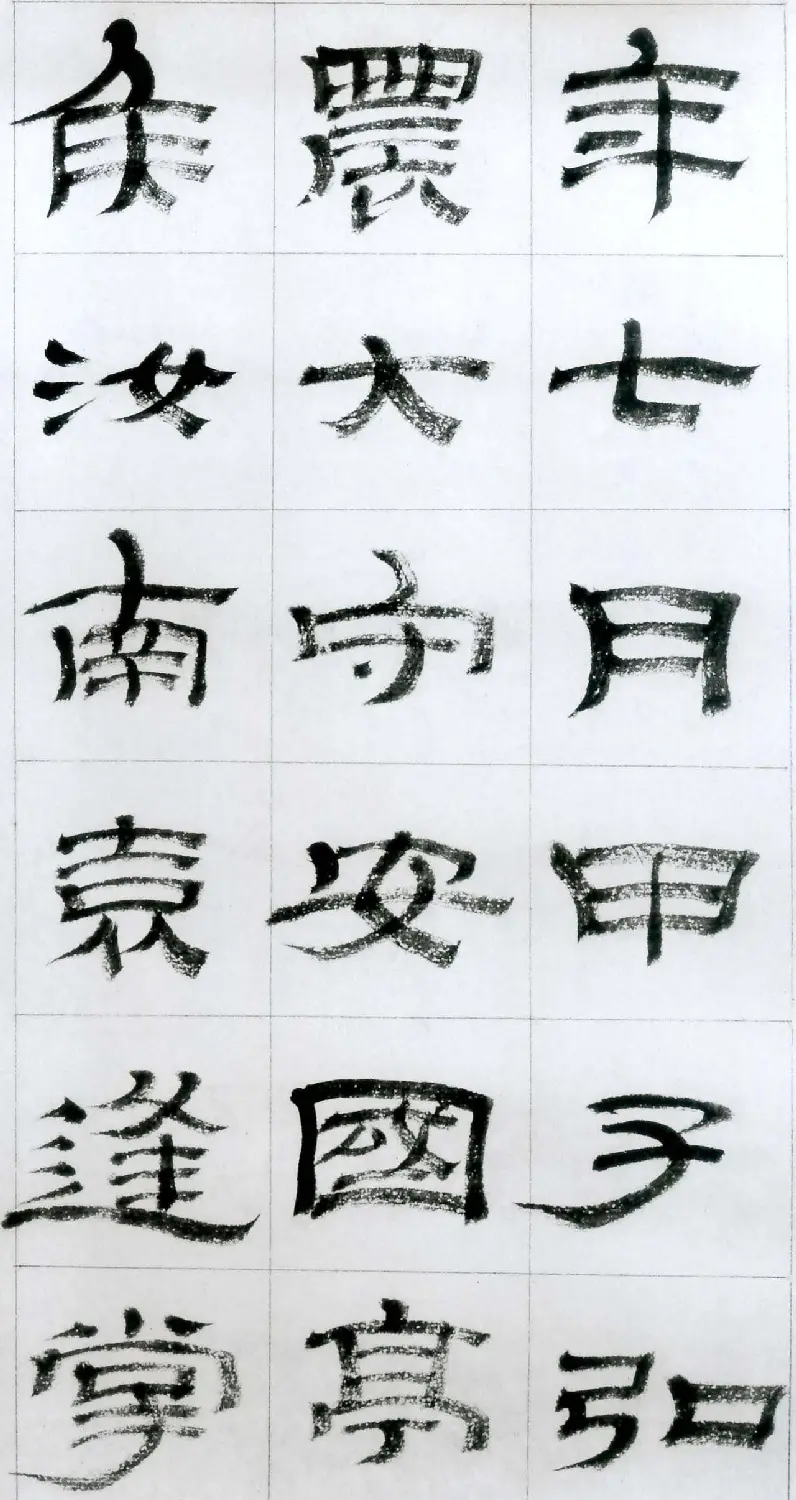 年七月甲子弘
農大守安國亭
侯汝南袁逢掌